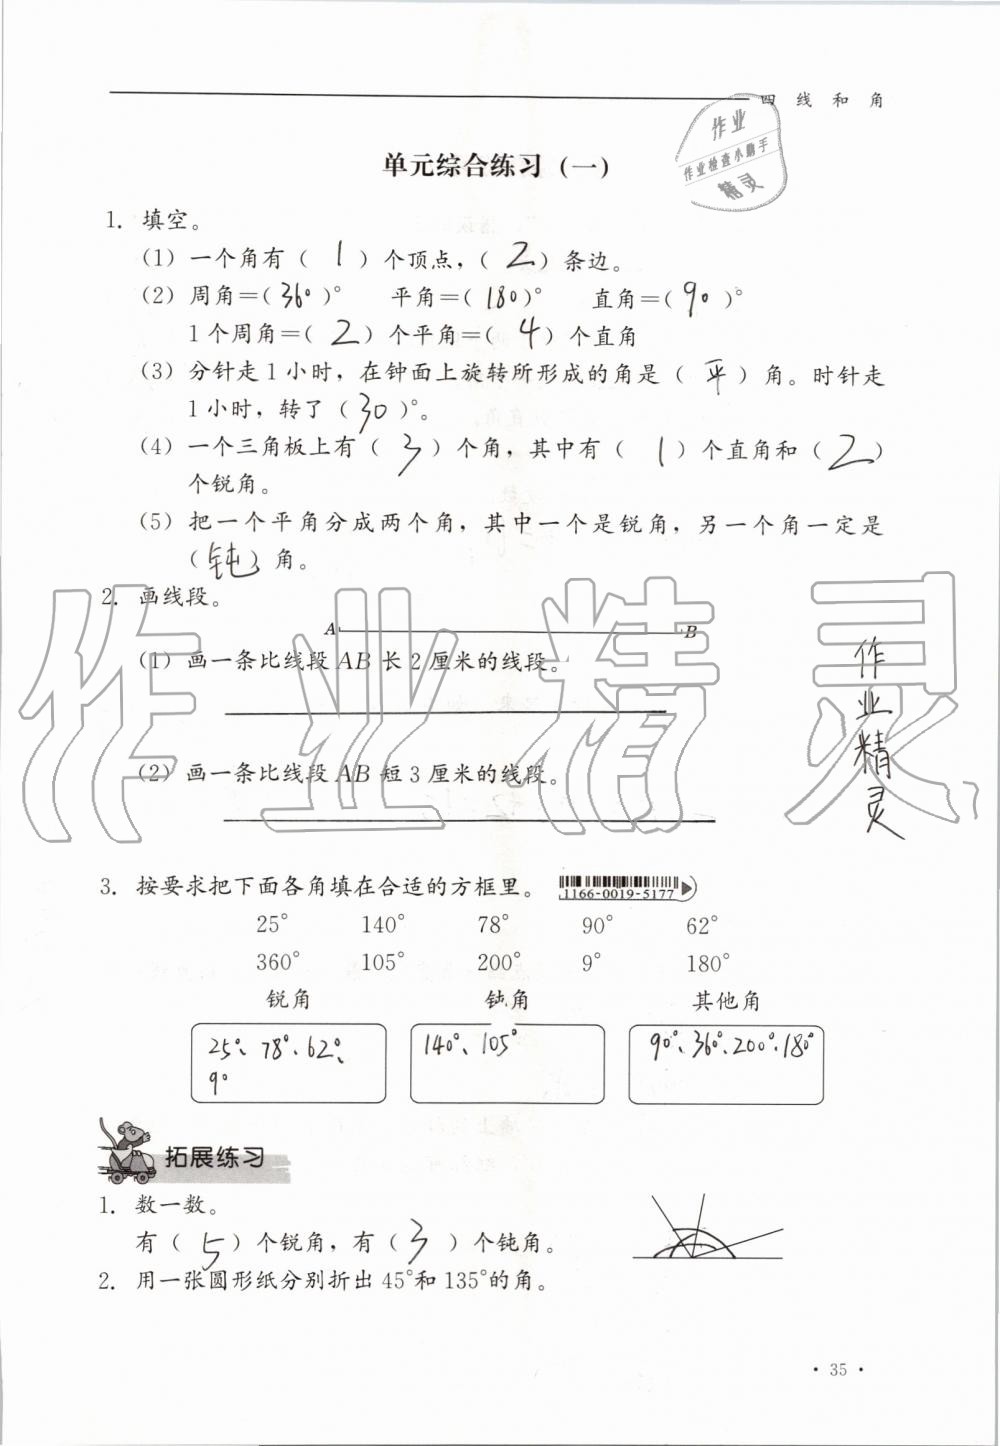 四 线 和 角
作业
作业检查小助手
精灵
单元综合练习(一)
1. 填空。
(1) 一个角有( 1 )个顶点,( 2 )条边。
(2) 周角=( 360 )° 平角=( 180 )° 直角=( 90 )°
1个周角=( 2 )个平角=( 4 )个直角
(3) 分针走1小时,在钟面上旋转所形成的角是( 平 )角。时针走
1小时,转了( 30 )°。
(4) 一个三角板上有( 3 )个角,其中有( 1 )个直角和( 2 )
个锐角。
(5) 把一个平角分成两个角,其中一个是锐角,另一个角一定是
( 钝 )角。
2. 画线段。
A B
(1) 画一条比线段AB长2厘米的线段。
(2) 画一条比线段AB短3厘米的线段。
作业精灵
作业精灵
3. 按要求把下面各角填在合适的方框里。 1166-0019-5177
25° 140° 78° 90° 62°
360° 105° 200° 9° 180°
锐角 钝角 其他角
25°、78°、62°、 140°、105° 90°、360°、200°、180°
9°
拓展练习
1. 数一数。
有( 5 )个锐角,有( 3 )个钝角。
2. 用一张圆形纸分别折出45°和135°的角。
· 35 ·